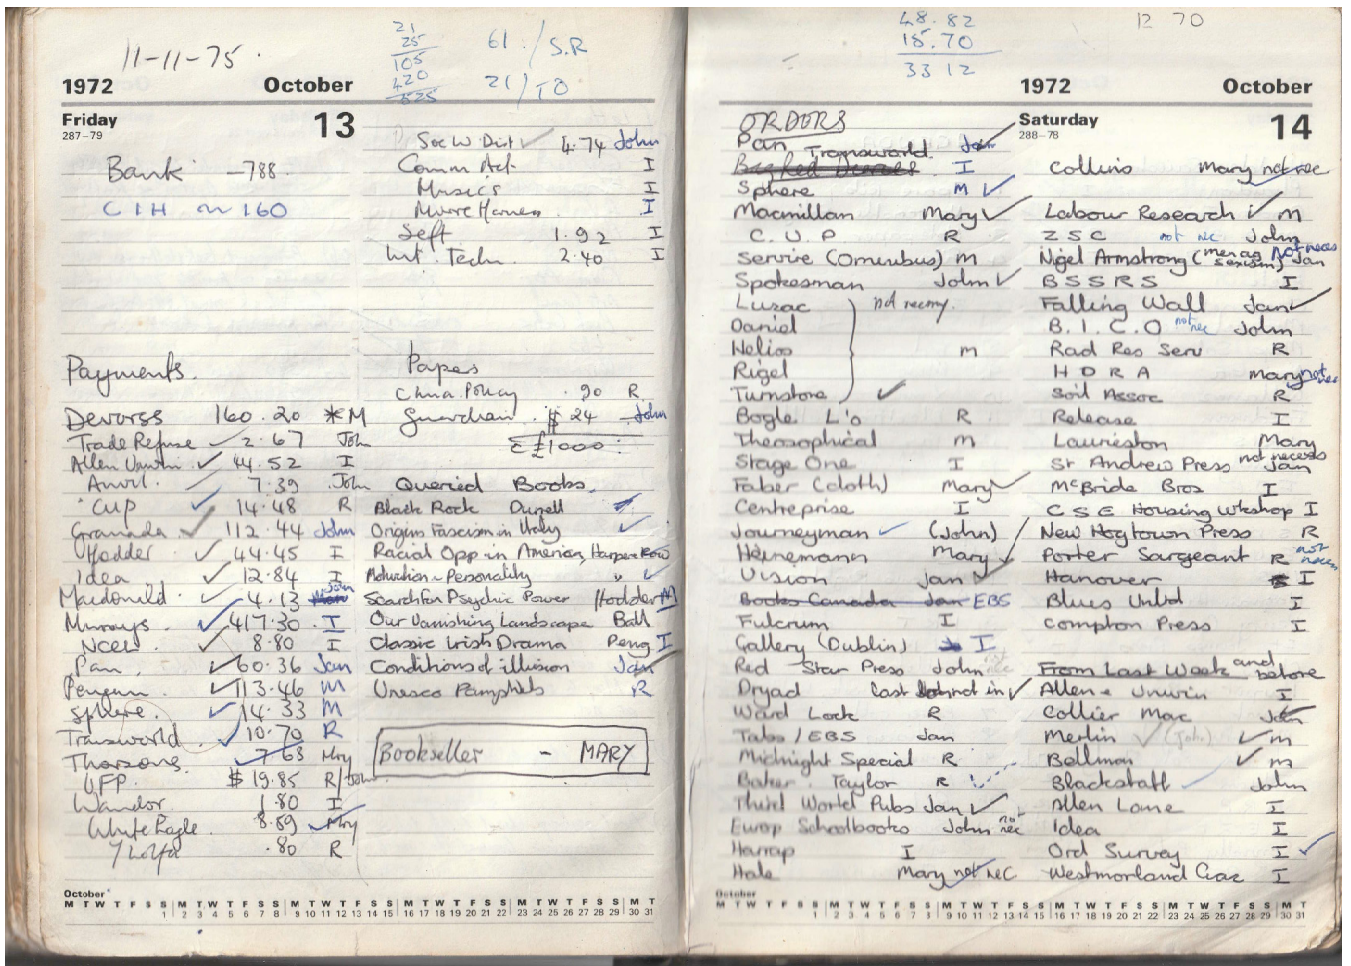 11-11-75.
21
25
105
420
525
61 / S.R
21 / TO
1972 October
Friday 13
287-79
Bank -788.
CIH ~ 160
Soc W. Dist 4.74 John
Comm Act. I
Musics I
I
Self 1.92 I
Int. Techn. 2.40 I
Payments.
Devorss 160.20 * M
Trade Refuse 2.67 John
Allen Unwin 44.52 I
Anvil. 7.39 John
CUP 14.48 R
Granada 112.44 John
Hodder 44.45 I
Idea 12.84 I
Macdonald 4.13 Jan
Murrays 417.30 I
NCCL 8.80 I
Pan 60.36 Jan
Penguin 113.46 M
Sphere. 14.33 M
Transworld 10.70 R
Thorsons 7.63 Mry
UFP. $19.85 R/John
Wandor 1.80 I
White Eagle 8.89 Mry
Y Lolfa .80 R
Papes
China Policy .90 R
Guardian $24 John
Σ £1000
Queried Books.
Black Rock Durell
Origins Fascism in Italy
Racial Opp in America, Harper Row
Motivation ~ Personality " 
Search for Psychic Power Hodder M
Our Vanishing Landscape Ball
Classic Irish Drama Peng I
Conditions of illusion Jan
Unesco Pamphlets R
Bookseller - MARY
October
M T W T F S S M T W T F S S M T W T F S S M T W T F S S M T W T F S S M T
1 2 3 4 5 6 7 8 9 10 11 12 13 14 15 16 17 18 19 20 21 22 23 24 25 26 27 28 29 30 31
48.82
15.70
33 12
12 70
1972 October
Saturday 14
288-78
ORDERS
Pan Jan
Transworld I
Sphere M
Macmillan Mary
C.U.P R
Servire (Omnibus) m
Spokesman John
Luzac not necessry.
Daniel
Helios m
Rigel
Turnstone
Bogle L'o R
Theosophical m
Stage One I
Faber (cloth) Mary
Centreprise I
Journeyman (John)
Heinemann Mary
Vision Jan
Books Canada Jan EBS
Fulcrum I
Gallery (Dublin) I
Red Star Press John not nec
Dryad Last not in
Ward Lock R
Tabs / EBS Jan
Midnight Special R
Baker. Taylor R
Third World Pubs Jan
Europ Schoolbooks John not nec
Harrap I
Hale Mary not NEC
Collins Mary not nec
Labour Research m
ZSC not NEC John
Nigel Armstrong (men ag sexism) Not neces Jan
BSSRS I
Falling Wall Jan
B.I.C.O not nec John
Rad Res Serv R
HDRA Mary not nec
Soil Assoc R
Release I
Lauriston Mary
St Andrew Press not necess Jan
McBride Bros I
CSE Housing Wkshop I
New Hogtown Press R
Porter Sargeant R not neces
Hanover I
Blues Unltd I
Compton Press I
From Last Week and before
Allen & Unwin I
Collier Mac Jan
Merlin (John) m
Bellman m
Blackstaff John
Allen Lane I
Idea I
Ord Survey I
Westmorland Gaz I
October
M T W T F S S M T W T F S S M T W T F S S M T W T F S S M T W T F S S M T
1 2 3 4 5 6 7 8 9 10 11 12 13 14 15 16 17 18 19 20 21 22 23 24 25 26 27 28 29 30 31